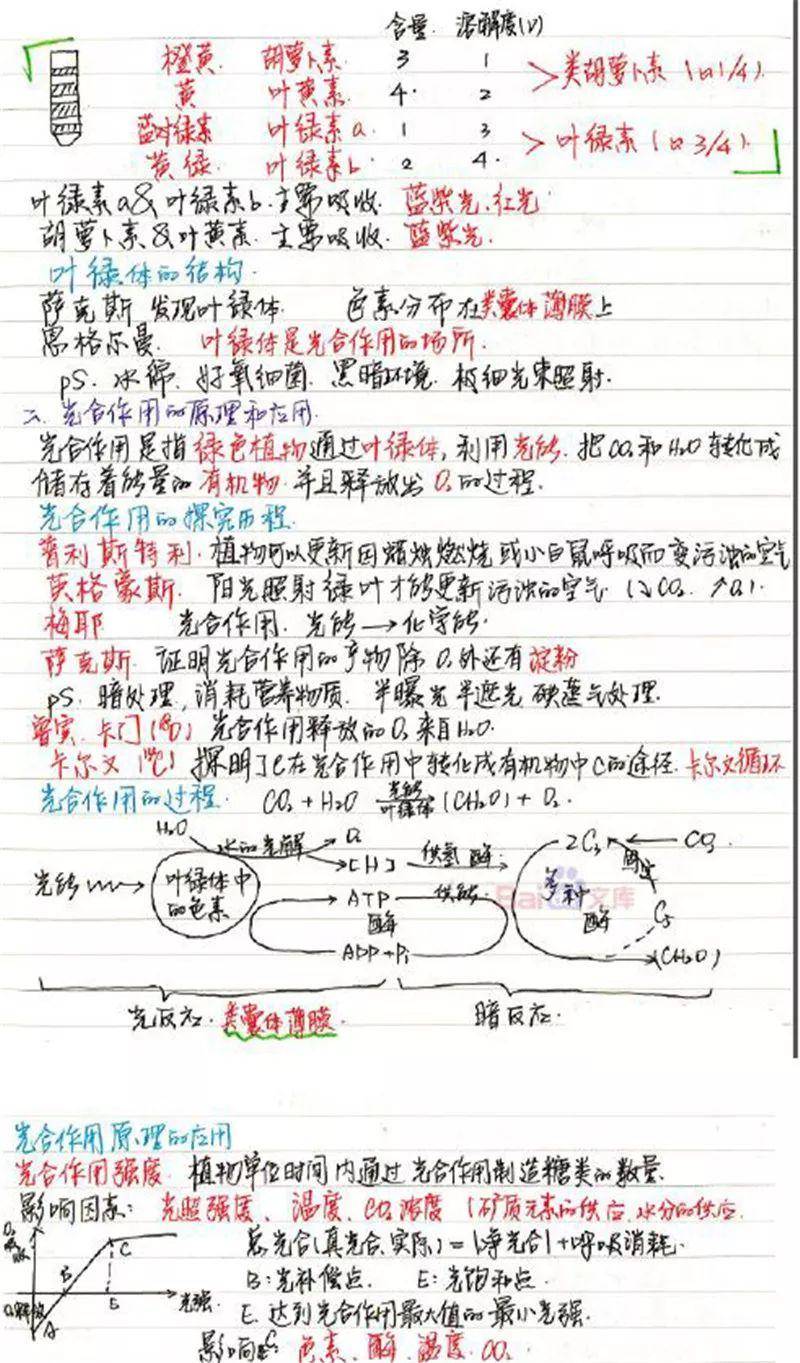 含量 溶解度(V)
橙黄 胡萝卜素 3 1
黄 叶黄素 4 2
类胡萝卜素(占1/4)
叶绿素a 1 3
黄绿 叶绿素b 2 4
叶绿素(占3/4)
叶绿素a&叶绿素b.主要吸收.蓝紫光、红光
胡萝卜素&叶黄素.主要吸收.蓝紫光.
叶绿体的结构.
萨克斯 发现叶绿体. 色素分布在类囊体薄膜上
恩格尔曼. 叶绿体是光合作用的场所.
PS.水绵.好氧细菌.黑暗环境.极细光束照射.
二.光合作用的原理和应用.
光合作用是指绿色植物通过叶绿体,利用光能.把CO₂和H₂O转化成
储存着能量的有机物.并且释放出O₂的过程.
光合作用的探究历程.
普利斯特利.植物可以更新因蜡烛燃烧或小白鼠呼吸而变污浊的空气
英格豪斯. 阳光照射绿叶才能更新污浊的空气.(↘CO₂.↗O₂).
梅耶 光合作用.光能→化学能.
萨克斯.证明光合作用的产物除O₂外还有淀粉
PS.暗处理,消耗营养物质.半曝光半遮光 碘蒸气处理.
鲁宾.卡门(¹⁸O) 光合作用释放的O₂来自H₂O.
卡尔文(¹⁴C) 探明了C在光合作用中转化成有机物中C的途径.卡尔文循环
光合作用的过程. CO₂+H₂O 光能 叶绿体 (CH₂O)+O₂.
H₂O 水的光解 O₂ 2C₃ 固定 CO₂
[H] 供氢 酶
光能 叶绿体中的色素 ATP 供能 多种酶 C₅
酶
ADP+Pi (CH₂O)
Bai 文库
光反应.类囊体薄膜. 暗反应.
光合作用原理的应用
光合作用强度.植物单位时间内通过光合作用制造糖类的数量.
影响因素:光照强度、温度、CO₂浓度(矿质元素的供应.水分的供应.
总光合(真光合.实际)=|净光合|+呼吸消耗.
O₂吸收 B C
B:光补偿点. E:光饱和点.
O₂释放 A E 光强
E.达到光合作用最大值的最小光强.
色素.酶.温度.CO₂